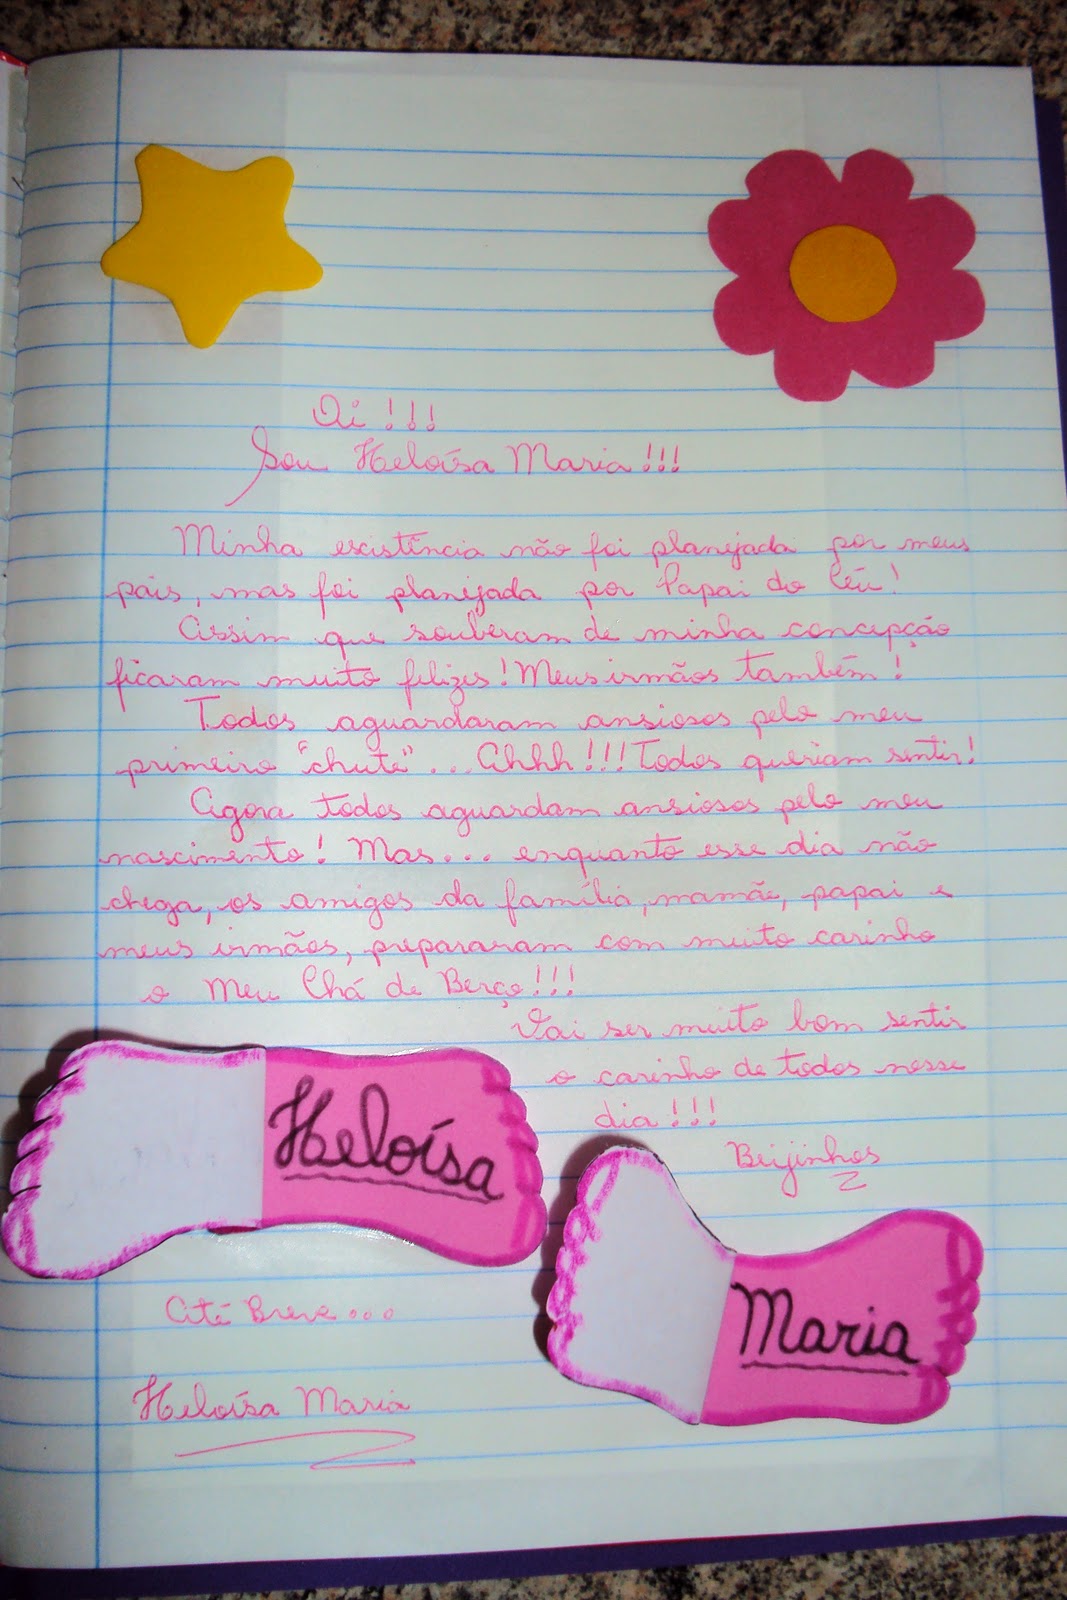 Oi !!!
Sou Heloísa Maria!!!
Minha existência não foi planejada por meus
pais, mas foi planejada por Papai do Céu!
Assim que souberam de minha concepção
ficaram muito felizes! Meus irmãos também!
Todos aguardaram ansiosos pelo meu
primeiro "chute"... Ahhh!!! Todos queriam sentir!
Agora todos aguardam ansiosos pelo meu
nascimento! Mas... enquanto esse dia não
chega, os amigos da família, mamãe, papai e
meus irmãos, prepararam com muito carinho
o Meu Chá de Berço!!!
Vai ser muito bom sentir
o carinho de todos nesse
dia!!!
Beijinhos
Heloísa
Maria
Até Breve...
Heloísa Maria